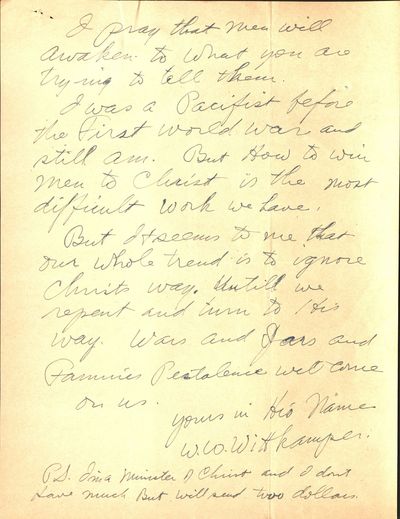 I pray that men will
awaken to what you are
trying to tell them.
I was a Pacifist before
the First world war and
still am. But How to win
men to Christ is the most
difficult work we have.
But It seems to me that
our whole trend is to ignore
Christs way. Untill we
repent and turn to His
way. Wars and Jars and
Famines Pestalence will come
on us.
yours in His Name
W.W. Wittkamper.
P.S. Im a Minister of Christ and I dont
have much But will send two dollars.